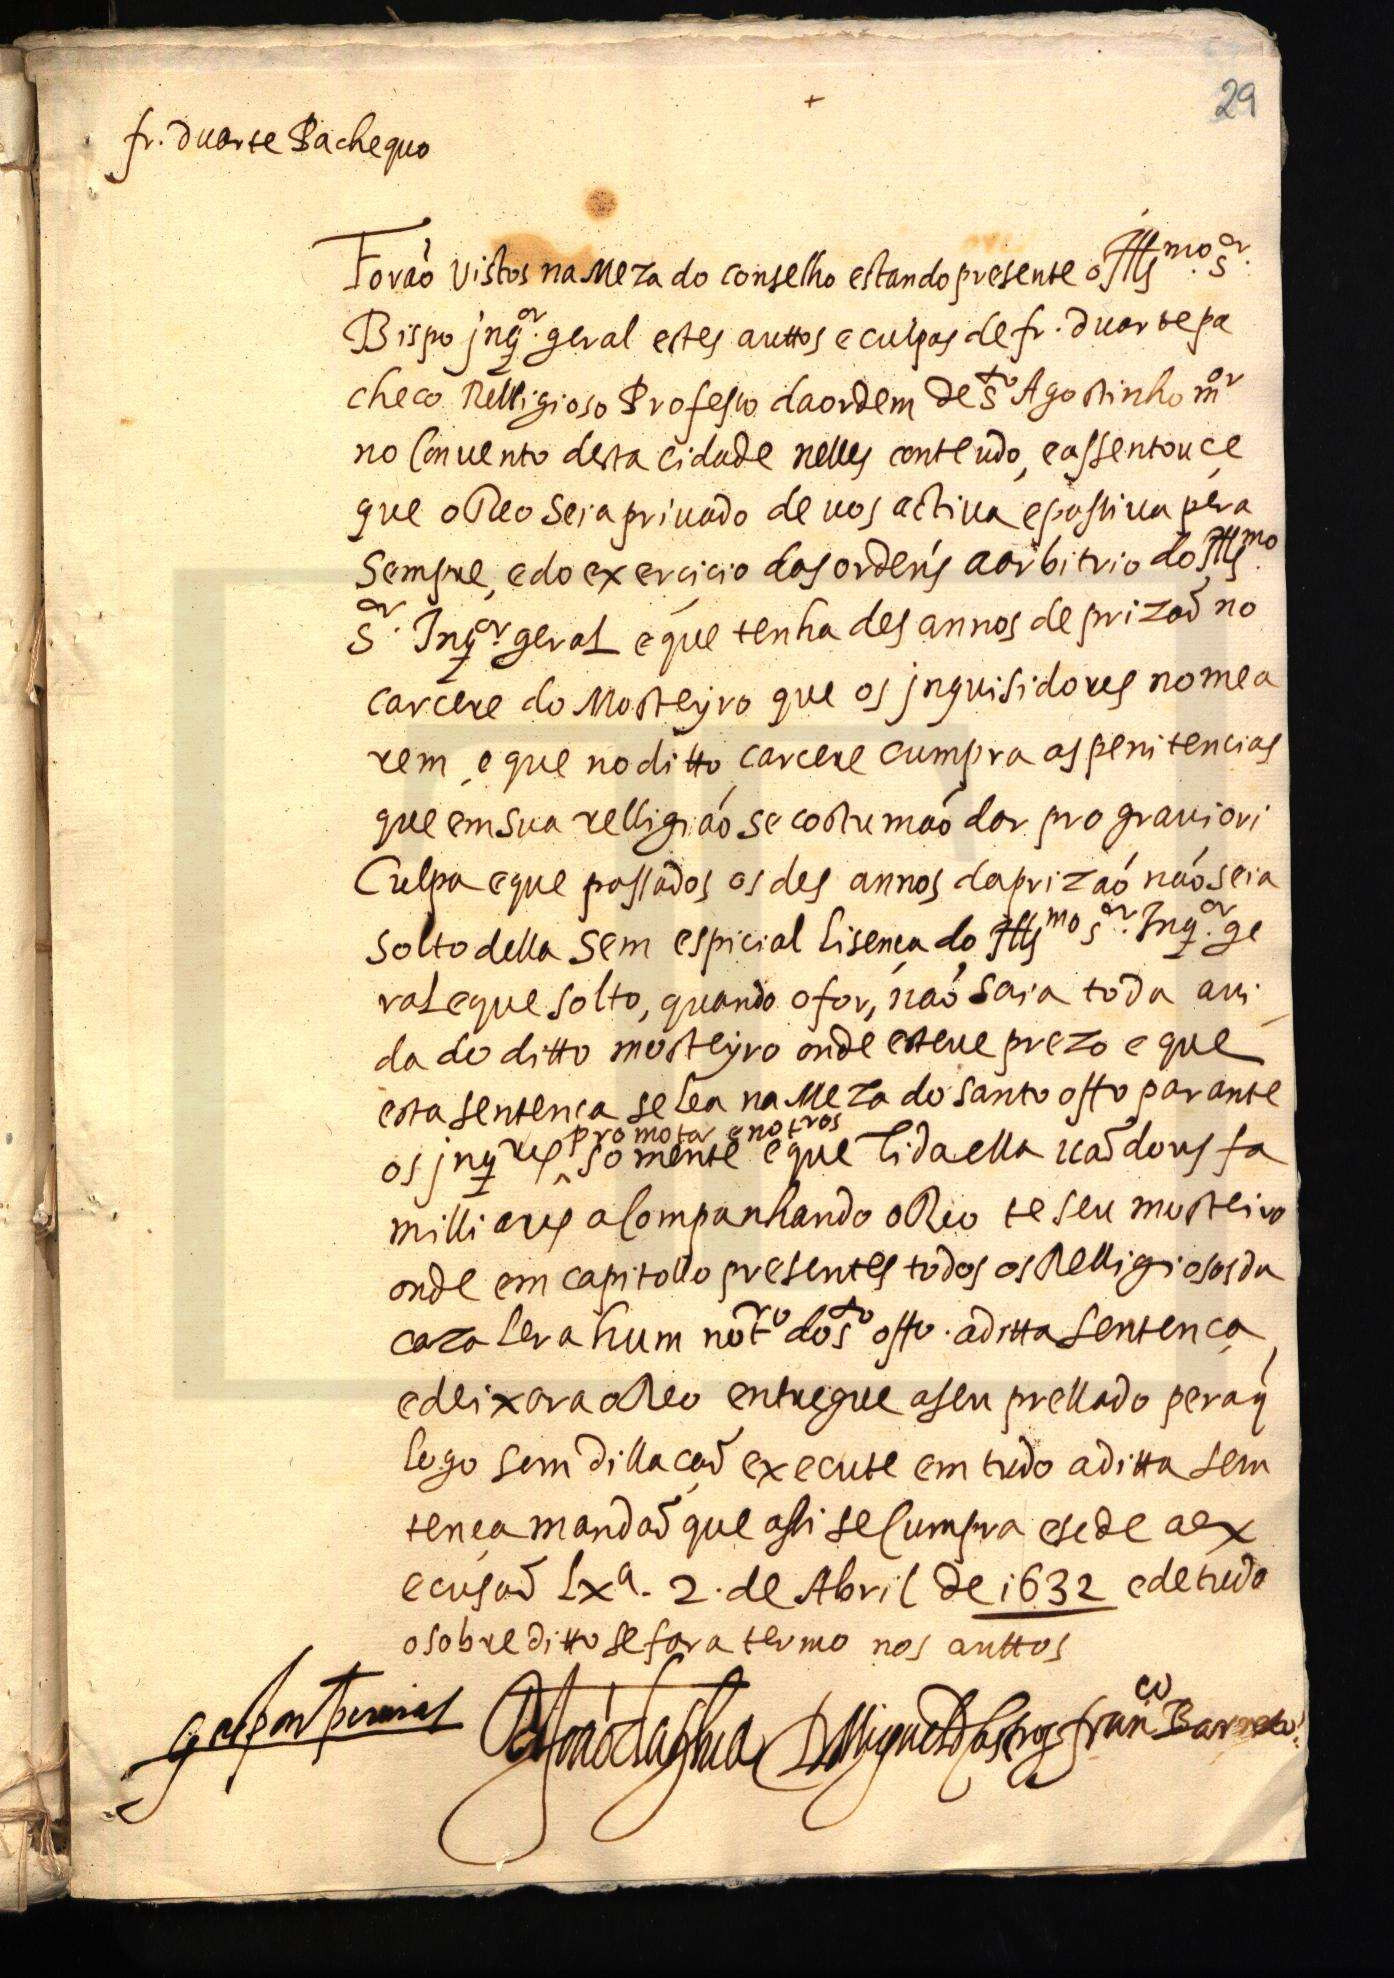 29
+
fr. Duarte Pachequo
Forão vistos na Meza do conselho estando presente o Illmo. Sor.
Bispo jnqor. geral estes auttos e culpas de fr. Duarte pa
checo Relligioso Professo da ordem de Sto Agostinho mor
no Convento desta cidade nelles conteudo, e assentouçe
que o Reo seia privado de vos activa e passiva pera
sempre, e do exercicio das ordens a arbitrio do Illmo.
Sor. Inqor. geral e que tenha des annos de prizaõ no
carcere do Mosteyro que os jnquisidores nomea
rem e que no ditto carcere cumpra as penitencias
que em sua relligiaõ se costumaõ dar pro graviori
Culpa e que passados os des annos da prizaõ naõ seia
solto della sem espicial lisença do Illmo Sor. Inqor. ge
ral e que solto, quando o for, naõ saia toda a vi
da do ditto mosteyro onde esteve prezo e que
esta sentença se lea na Meza do santo offo parante
promotor e notros
os jnqres somente e que lida ella vaõ dous fa
milliares acompanhando o Reo te seu mosteiro
onde em capitollo presentes todos os Relligiosos da
caza lera hum notro do sto offo. a ditta sentença
e deixara o Reo entregue a seu prellado pera q̃
logo sem dillaçaõ execute em tudo a ditta sem
tença mandaõ que assi se Cumpra e se de a ex
ecusaõ Lxa. 2. de Abril de 1632 e de tudo
o sobreditto se fara termo nos auttos
gaspar pereira Dom João da Silva D Miguel de Castro franco Barreto